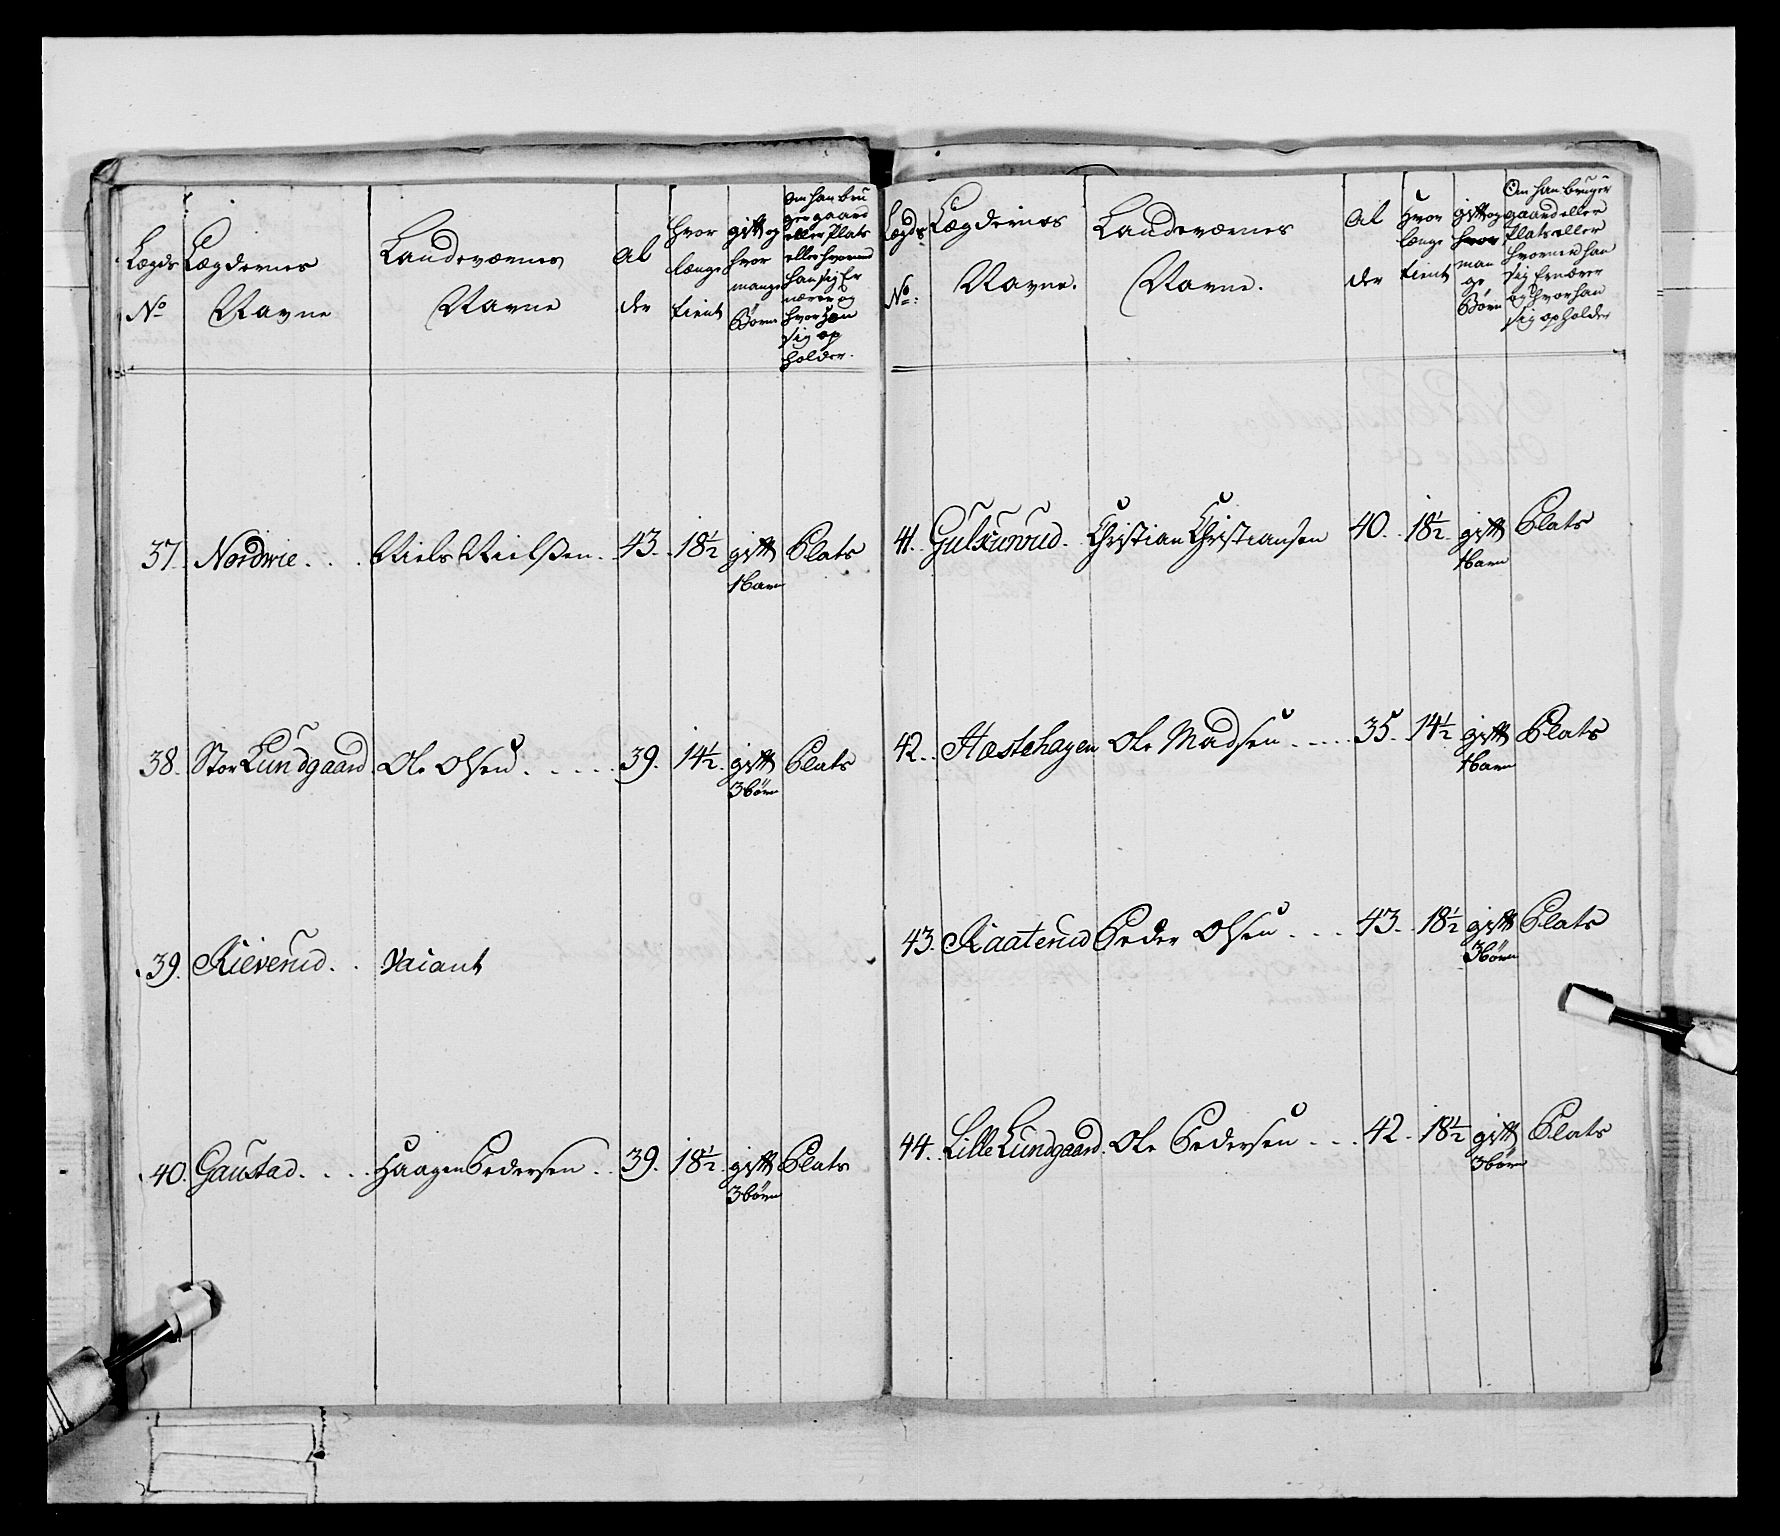 Lægds No
Lægdernes Navne
Landeværnes Navne
Alder
hvor længe tient
gift og hvor mange Børn
Om han bruger gaard eller Plats eller hvormed han sig Ernærer og hvor Han sig opholder.
37. Nordvie. . . . Niels Nielsen. 43. 18½ gift 1 barn Plats
38. Stor Lundgaard. Ole Olsen. . . . . . 39. 14½. gift 3 børn Plats
39. Kieverud. . . Vacant
40. Gaustad. . . . . Haagen Pedersen . . 39. 18½. gift 3 børn Plats
Lægds No:
Lægdernes Navne.
Landeværnes Navne.
Alder
Hvor længe tient
gift og hvor mange Børn
Om han bruger gaard eller Plats eller hvormed han sig Ernærer og hvor han sig opholder
41. Gulxunrud. Christian Christiansen 40. 18½. gift 1 barn Plats
42. Hæstehagen Ole Madsen . . . . . 35. 14½ gift 1 barn Plats
43. Raaterud Peder Olsen . . . . 43. 18½ gift 3 børn Plats
44. Lille Lundgaard. Ole Pedersen . . . . 42. 18½ gift 3 børn Plats